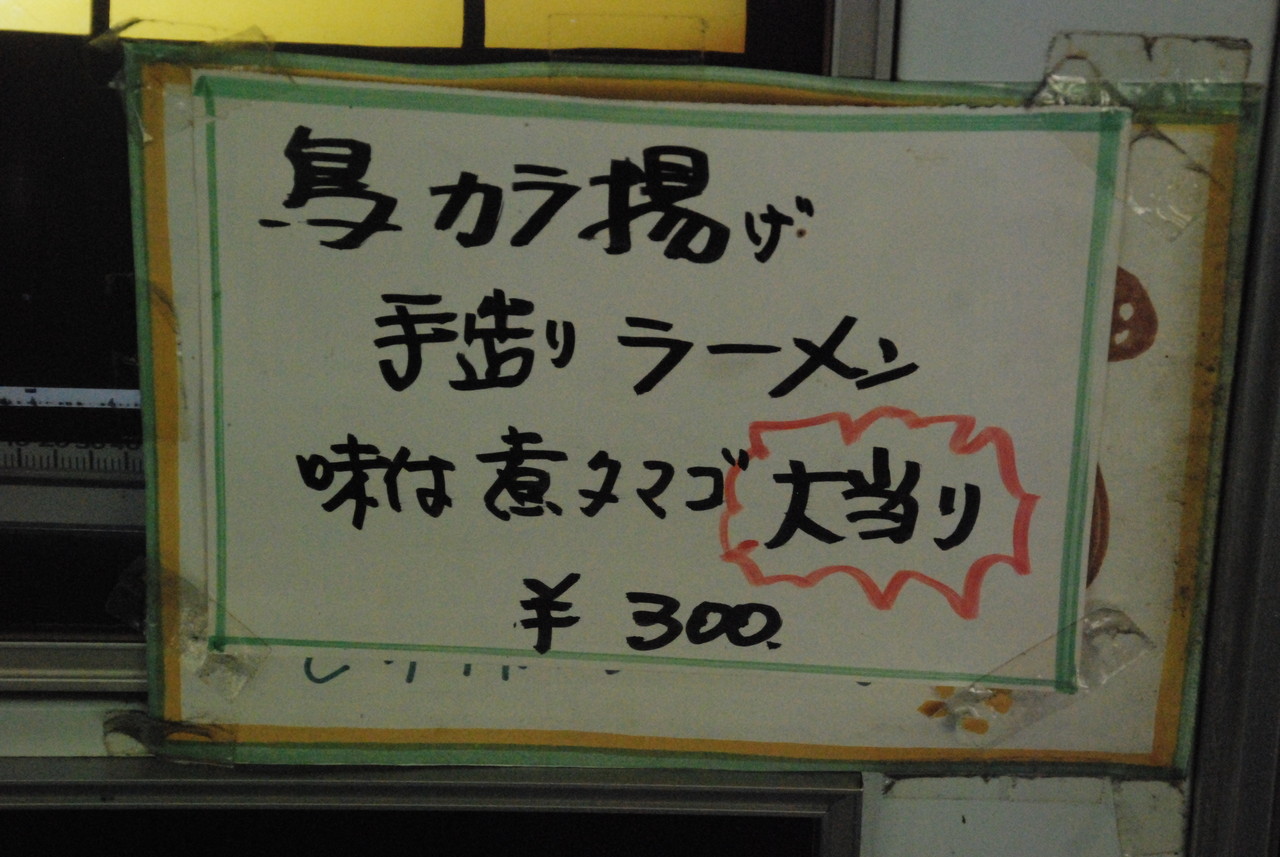 鳥カラ揚げ
手造りラーメン
味付煮タマゴ 大当り
¥300.